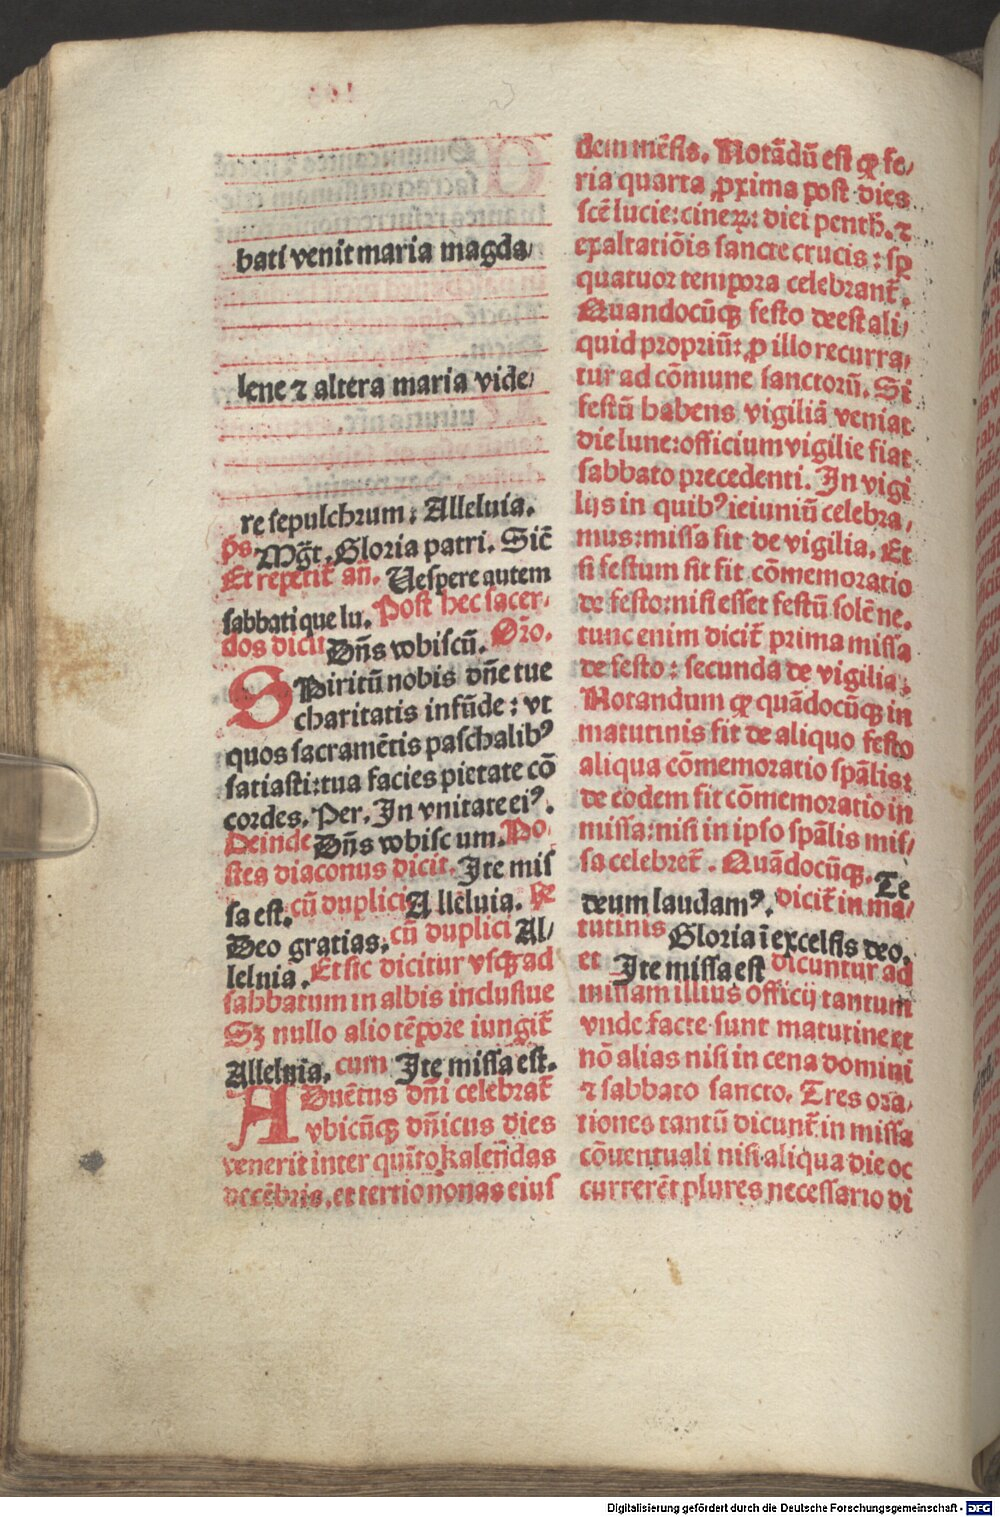 bati venit maria magda/
lene ⁊ altera maria vide/
re sepulchrum: Alleluia.
p̄s Mg̅t. Gloria patri. Sic̄
Et repetit̄ an̄. Uespere autem
sabbati que lu. Post hec sacer-
dos dicit Dn̄s vobiscū. Or̄o.
SPiritū nobis dn̄e tue
charitatis infūde: vt
quos sacramētis paschalibꝰ
satiasti: tua facies pietate cō
cordes. Per. In vnitate eiꝰ.
Deinde Dn̄s vobiscum. Po-
stea diaconus dicit. Ite mis
sa est. cū duplici Allēluia. ℞
Deo gratias. cū duplici Al/
leluia. Et sic dicitur vsqꝫ ad
sabbatum in albis inclusiue
Sꝫ nullo alio tēpore iungit̄
Alleluia. cum Ite missa est.
ADuētus dn̄i celebrat̄
vbicūqꝫ dn̄icus dies
venerit inter quīto kalēdas
decēbris, et tertio nonas eius
dem mēsis. Notādū est ꝙ fe/
ria quarta ꝓxima post dies
scē lucie: cineꝝ: diei penth. ⁊
exaltatiōis sancte crucis: sꝑ
quatuor tempora celebrant̄.
Quandocūqꝫ festo deest ali/
quid propriū: ꝓ illo recurra/
tur ad cōmune sanctorū. Si
festū habens vigiliā veniat
die lune: officium vigilie fiat
sabbato precedenti. In vigi
lijs in quibꝰ ieiuniū celebra/
mus: missa fit de vigilia. Et
si festum sit fit cōmemoratio
de festo: nisi esset festū solēne.
tunc enim dicit̄ prima missa
de festo: secunda de vigilia.
Notandum ꝙ quādocūqꝫ in
matutinis fit de aliquo festo
aliqua cōmemoratio spālis:
de eodem fit cōmemoratio in
missa: nisi in ipso spālis mis/
sa celebret̄. Quādocūqꝫ. Te
deum laudamꝰ. dicit̄ in ma/
tutinis Gloria ī excelsis deo.
et Ite missa est dicuntur ad
missam illius officij tantum
vnde facte sunt matutine et
nō alias nisi in cena domini
⁊ sabbato sancto. Tres ora/
tiones tantū dicunt̄ in missa
cōuentuali nisi aliqua die oc
currerēt plures necessario di
Digitalisierung gefördert durch die Deutsche Forschungsgemeinschaft - DFG